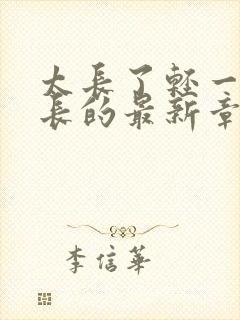 太長了輕一
長的最新章
李信華